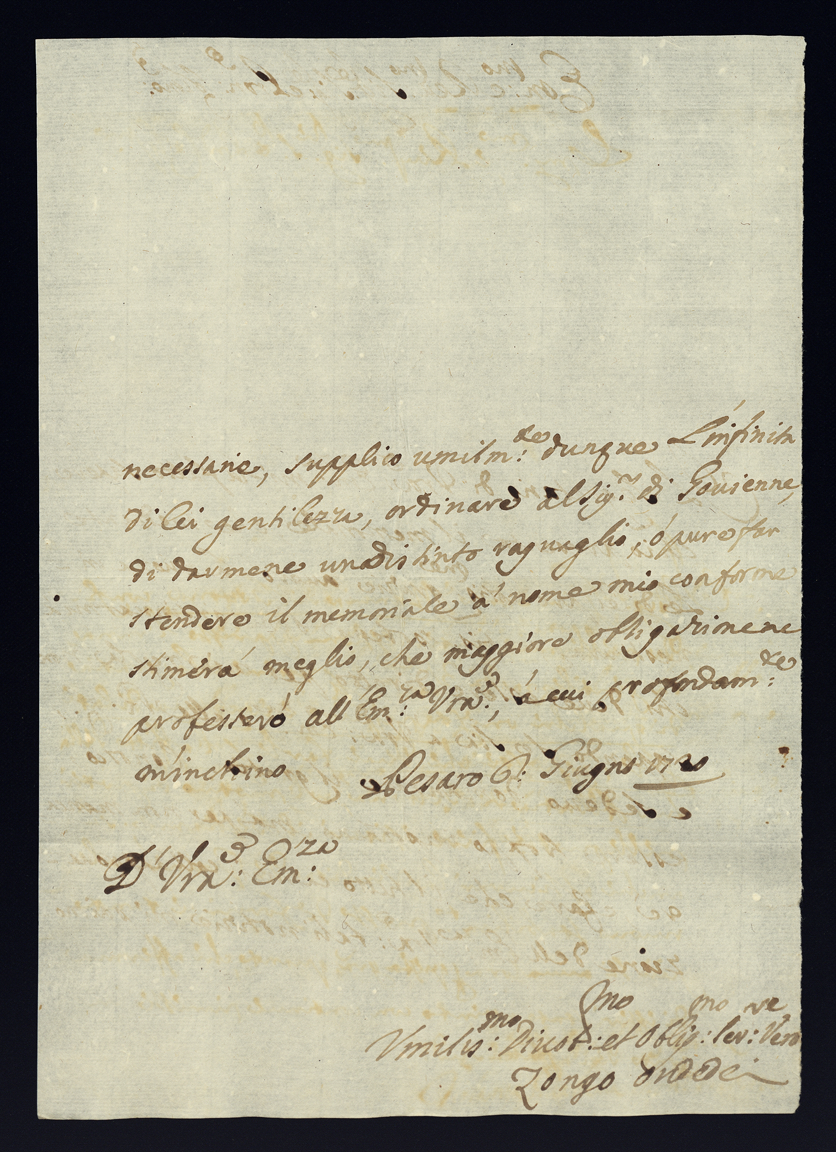 necessarie, supplico umilm:te dunque L'infinita
di lei gentilezza, ordinare al Sig.r di
di darmene un distinto raguaglio, ó pure far
stendere il memoriale á nome mio conforme
stimerá meglio, che maggiore obligazione ne
professeró all' Em:za Vra, á cui profondam:te
m'inchino Pesaro 6: Giugno
D' Vra: Em:za
Vmilis:mo Divot:mo et Oblig:mo Ser:re Vero
Zongo Ondedei